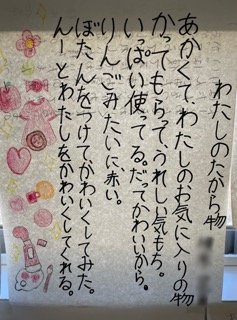 わたしのたから物
あかくて、わたしのお気に入りの物
かってもらって、うれしい気もち。
いっぱい使ってる。だってかわいいから。
りんごみたいに赤い。
ぼたんをつけて、かわいくしてみた。
んーとわたしをかわいくしてくれる。